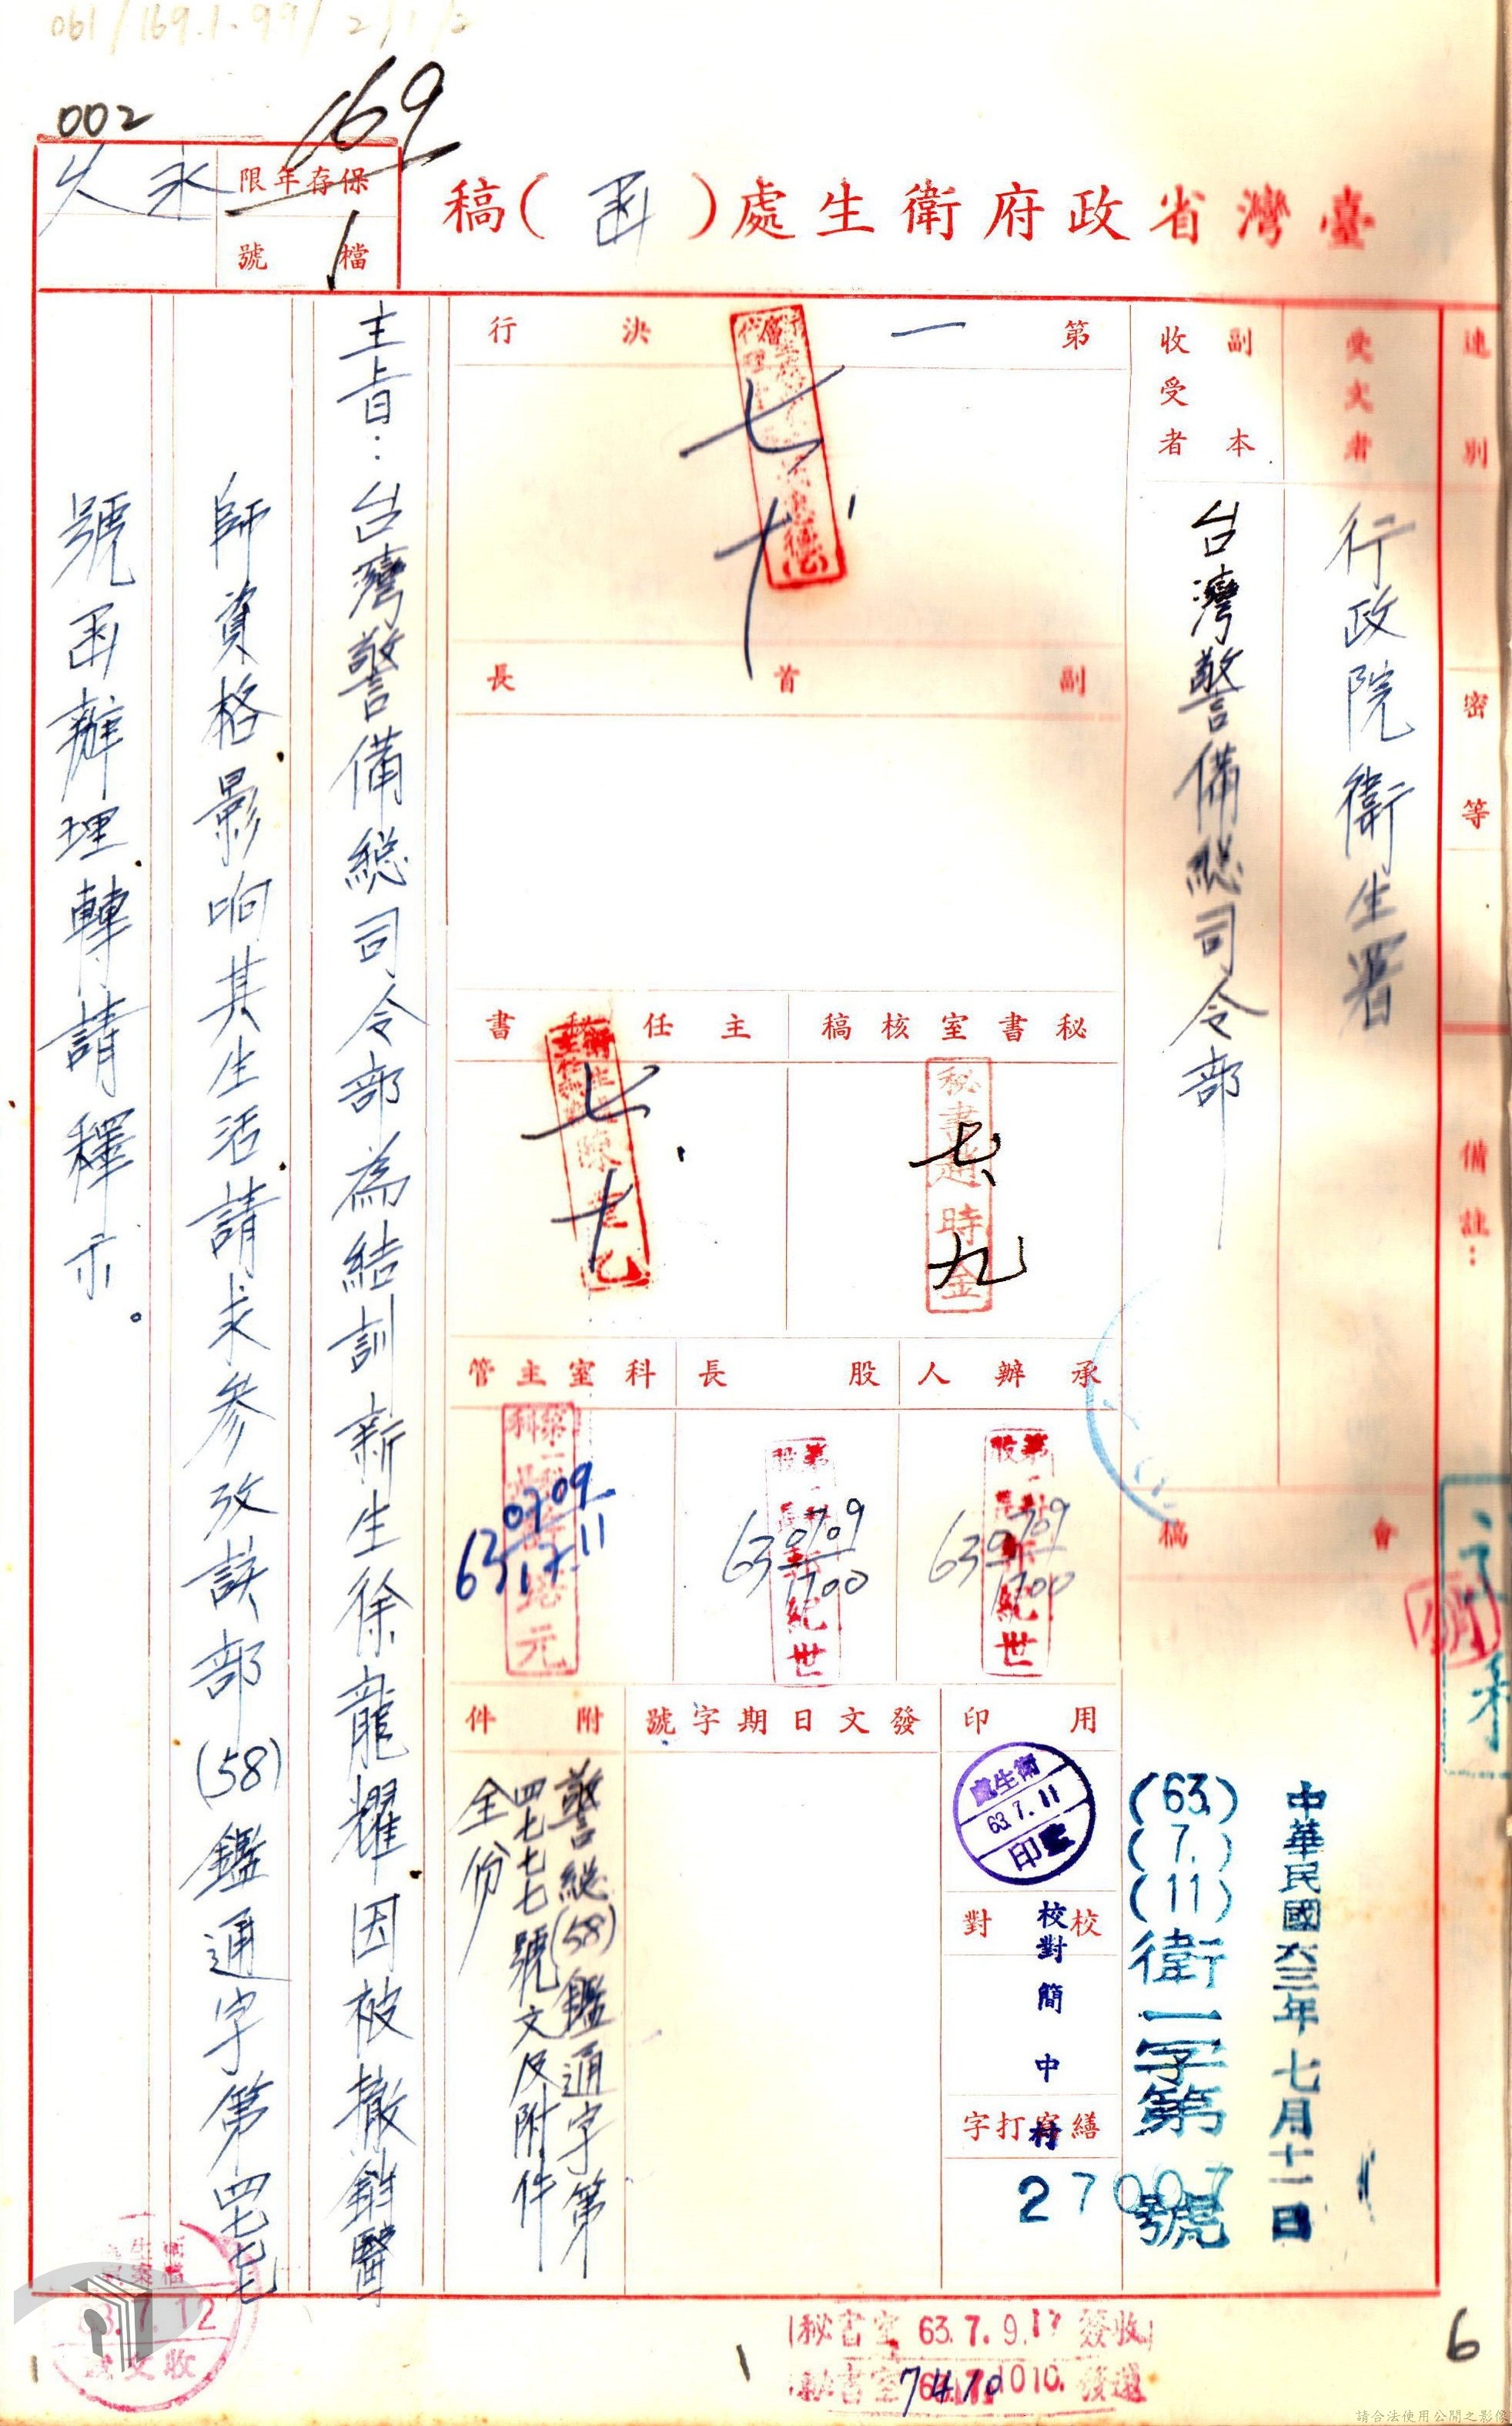 061/169.1-99/2/1/2
002
169
保存年限
永久
檔號
1
臺灣省政府衛生處(函)稿
速別
密等
備註：
受文者
行政院衛生署
副本
收受者
台灣警備総司令部
會稿
第一決行
七、十
副首長
秘書室核稿
主任秘書
秘書趙時金
七、九
七、十
承辦人
股長
科室主管
63 0709 1700
63 0709 1700
63 0709 17-11
用印
發文日期字號
附件
衛生處
63.7.11
印監
校對
校對簡中村
繕寫打字
警総(58)鑑通字第
四七七七號文及附件
全份
中華民國六三年七月十一日
(63)(7.)(11)衛一字第27007號
主旨：台灣警備総司令部為結訓新生徐龍耀因被撤銷醫
師資格影响其生活請求參攷該部(58)鑑通字第四七七七
號函辦理轉請釋示。
63.7.12
收文
秘書室 63.7.9.17 簽收
秘書室 發還
7410
6
請合法使用公開之影像